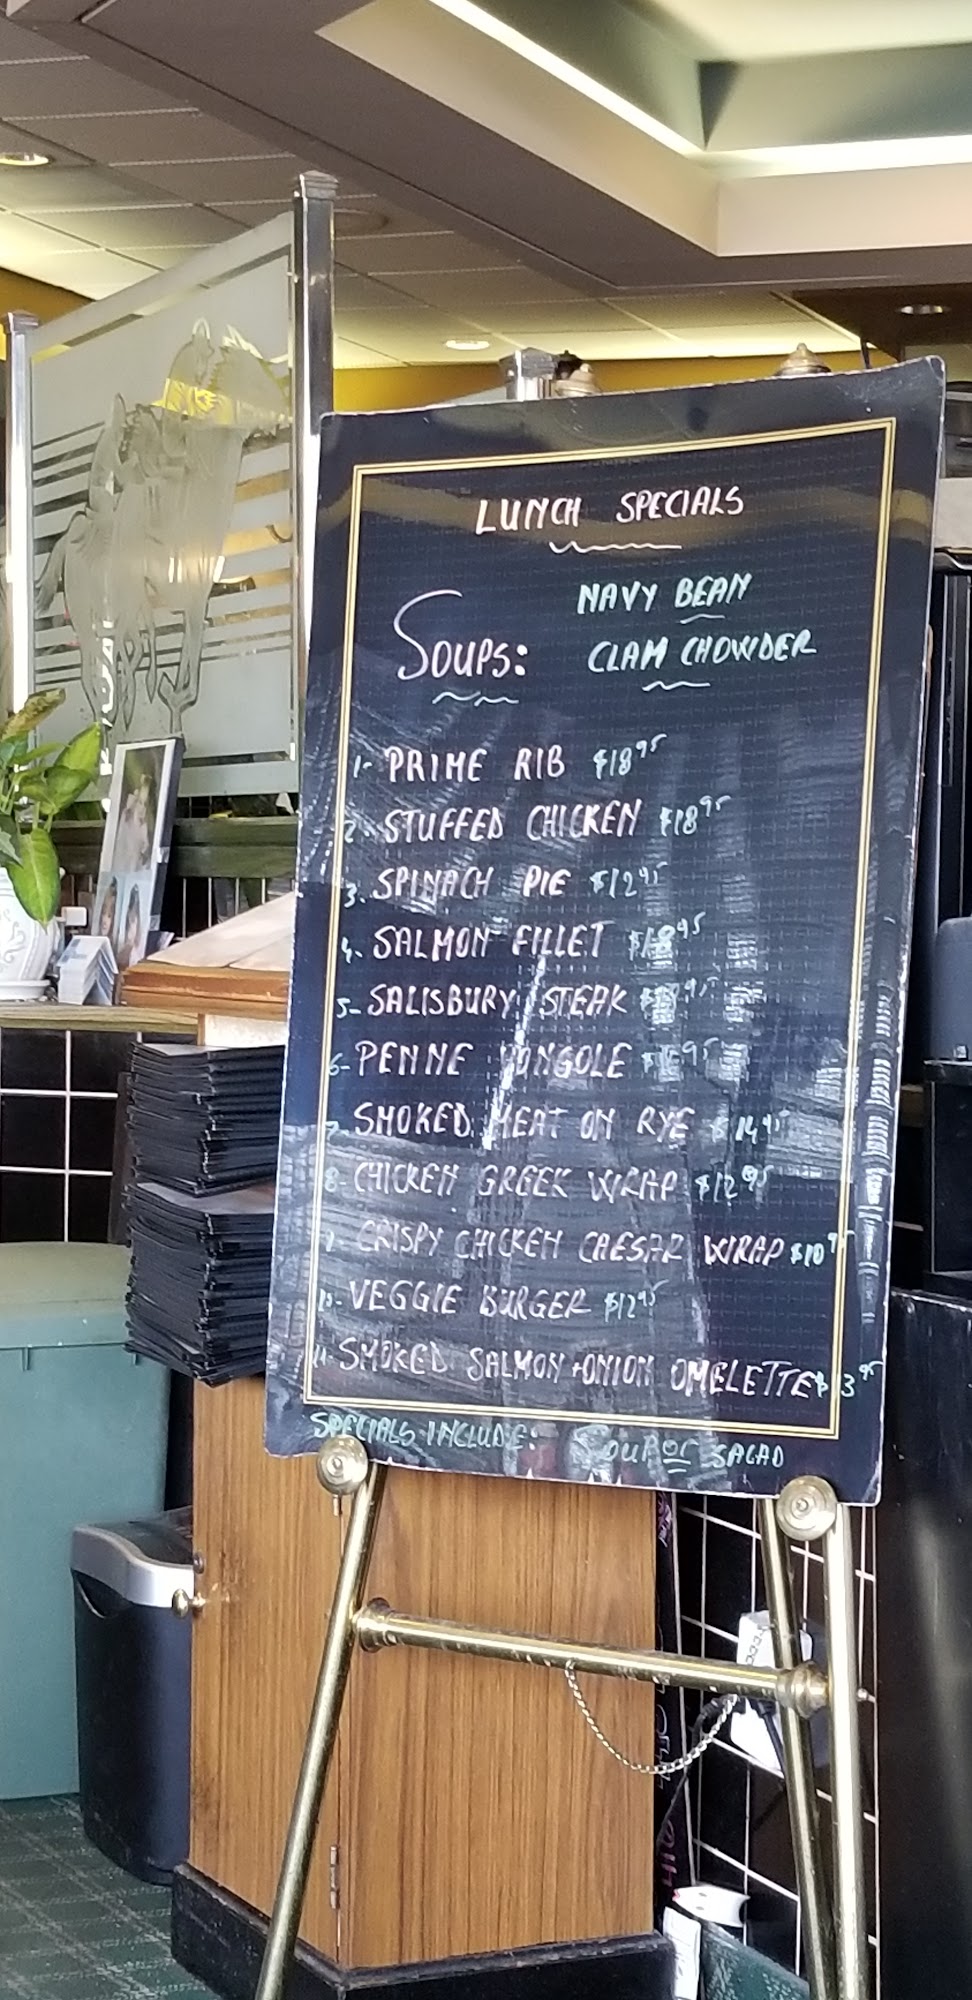 LUNCH SPECIALS
SOUPS: NAVY BEAN
CLAM CHOWDER
1- PRIME RIB $18.95
2. STUFFED CHICKEN $18.95
3. SPINACH PIE $12.95
4. SALMON FILLET $18.95
5- SALISBURY STEAK
6- PENNE VONGOLE
7. SMOKED MEAT ON RYE $14.95
8- CHICKEN GREEK WRAP $12.95
9. CRISPY CHICKEN CAESAR WRAP $10.95
10- VEGGIE BURGER $12.95
11- SMOKED SALMON + ONION OMELETTE $13.95
SPECIALS INCLUDE: SOUP OR SALAD